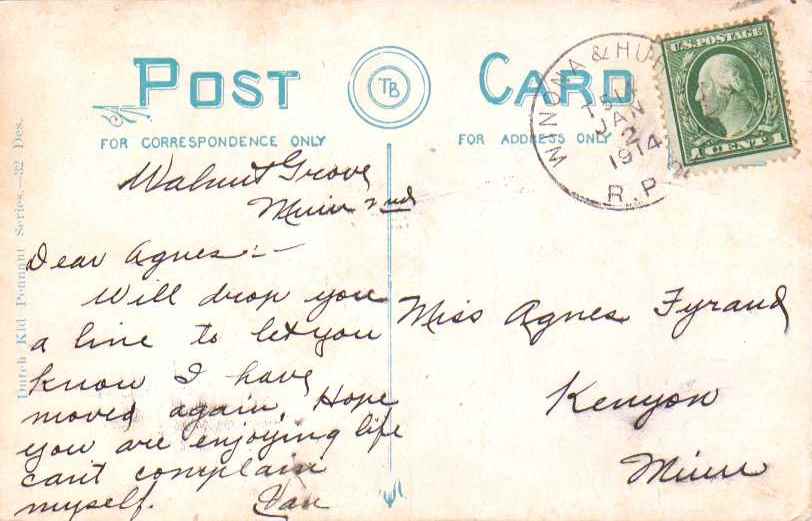 POST CARD
TB
FOR CORRESPONDENCE ONLY
FOR ADDRESS ONLY
U.S. POSTAGE
1 CENT 1
WINONA &
JAN
2
1914
R.P
Dutch Kid Pennant Series.—32 Des.
Walnut Grove
Minn 2nd
Dear Agnes:-
Will drop you
a line to let you
know I have
moved again. Hope
you are enjoying life
cant complain
myself.
Miss Agnes Fyrand
Kenyon
Minn